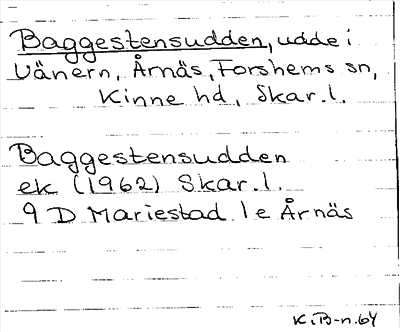 Baggestensudden, udde i
Vänern, Årnäs, Forshems sn,
Kinne hd, Skar.l.
Baggestensudden
ek (1962) Skar.l.
9 D Mariestad 1e Årnäs
K.B-n.64